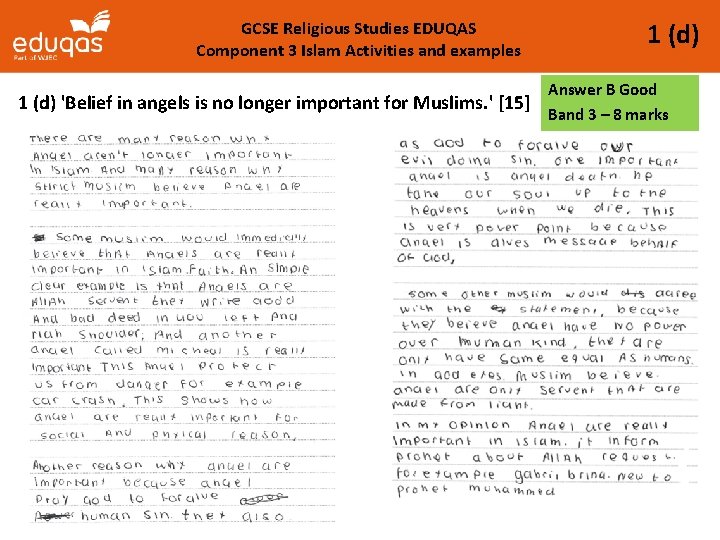 eduqas
Part of WJEC
GCSE Religious Studies EDUQAS
Component 3 Islam Activities and examples
1 (d)
1 (d) 'Belief in angels is no longer important for Muslims.' [15]
Answer B Good
Band 3 – 8 marks
There are many reason why
Angel aren't longer important
In Islam And many reason why
strict muslim believe Angel are
really important.
Some muslim would immedietly
believe that Angels are really
important in Islam Faith. An simple
clear example is that Angels are
Allah servent they write good
And bad deed in you left And
righ shoulder, And another
angel called micheal is really
Important This Angel protect
us from danger for example
car crash, This shows how
angel are really important for
social And phyical reason.
Another reason why angel are
Important because angel
pray god to forgive
human sin. they also
as God to forgive our
evil doing sin. one important
angel is angel death. he
take our soul up to the
heavens when we die. This
is very power point because
angel is gives message behalf
of God,
some other muslim would agree
with the statement, because
they believe angel have no power
over human kind, they are
only have same equal As humans.
in god eyes Muslim believe
angel are only servent that are
made from light.
in my opinion Angel are really
important in Islam. it inform
prohet about Allah reques t.
for example gabril bring new to
prohet muhammed